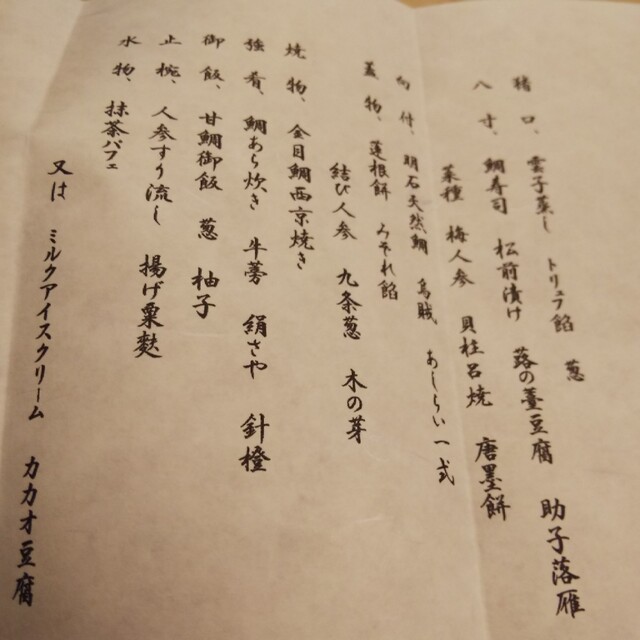 猪口、雲子蒸し トリュフ餡 葱
八寸、鯛寿司 松前漬け 蕗の薹豆腐 助子落雁
菜種 梅人参 貝柱呂焼 唐墨餅
向付、明石天然鯛 烏賊 あしらい一式
蓋物、蓮根餅 みぞれ餡
結び人参 九条葱 木の芽
焼物、金目鯛西京焼き
強肴、鯛あら炊き 牛蒡 絹さや 針橙
御飯、甘鯛御飯 葱 柚子
止椀、人参すり流し 揚げ粟麩
水物、抹茶パフェ
又は ミルクアイスクリーム カカオ豆腐